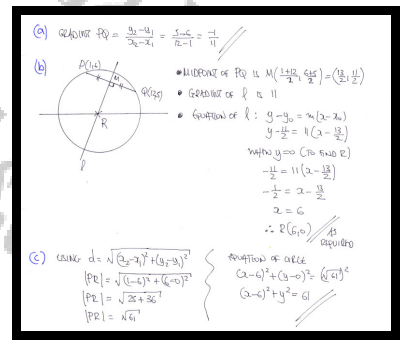 (a) GRADIENT PQ = \frac{y_2-y_1}{x_2-x_1} = \frac{5-6}{12-1} = \frac{-1}{11}
(b)
P(1,6)
M
Q(12,5)
R
l
• MIDPOINT OF PQ IS M(\frac{1+12}{2}, \frac{6+5}{2}) = (\frac{13}{2}, \frac{11}{2})
• GRADIENT OF l IS 11
• EQUATION OF l : y-y_0 = m(x-x_0)
y-\frac{11}{2} = 11(x-\frac{13}{2})
WHEN y=0 (TO FIND R)
-\frac{11}{2} = 11(x-\frac{13}{2})
-\frac{1}{2} = x-\frac{13}{2}
x = 6
∴ R(6,0) AS REQUIRED
(c) USING d = \sqrt{(x_2-x_1)^2+(y_2-y_1)^2}
|PR| = \sqrt{(1-6)^2+(6-0)^2}
|PR| = \sqrt{25+36}
|PR| = \sqrt{61}
EQUATION OF CIRCLE
(x-6)^2+(y-0)^2 = (\sqrt{61})^2
(x-6)^2+y^2 = 61